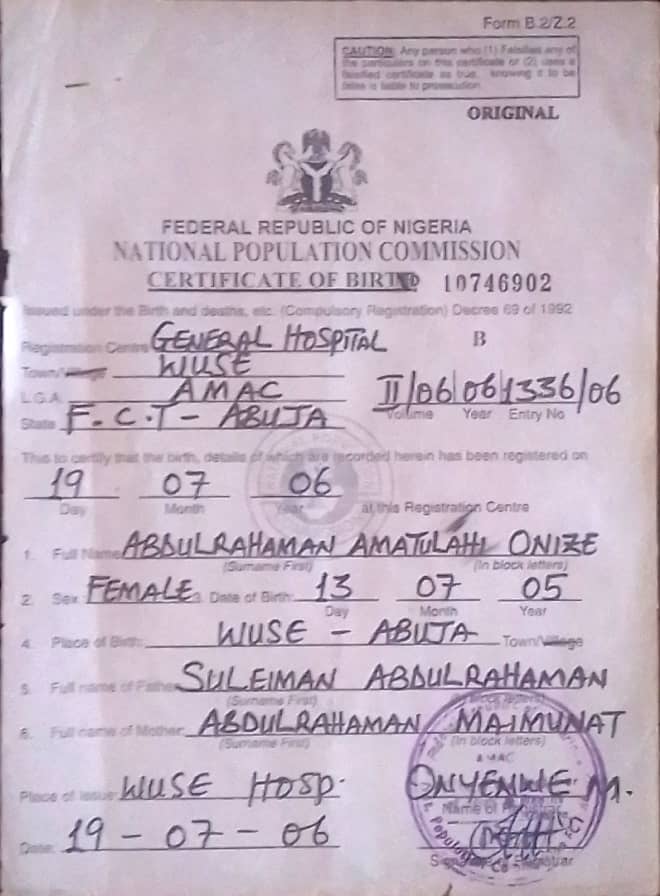 Form B.2/Z.2
CAUTION: Any person who (1) Falsifies any of
the particulars on this certificate or (2) uses a
falsified certificate as true, knowing it to be
false is liable to prosecution.
ORIGINAL
FEDERAL REPUBLIC OF NIGERIA
NATIONAL POPULATION COMMISSION
CERTIFICATE OF BIRTH 10746902
Issued under the Birth and deaths, etc. (Compulsory Registration) Decree 69 of 1992
Registration Centre GENERAL HOSPITAL B
Town/Village WUSE
L.G.A. AMAC II/06/06/1336/06
Volume Year Entry No
State F.C.T - ABUJA
This to certify that the birth, details of which are recorded herein has been registered on
19 07 06
Day Month Year at this Registration Centre
1. Full Name ABDULRAHAMAN AMATULAHI ONIZE
(Surname First) (In block letters)
2. Sex FEMALE 3. Date of Birth: 13 07 05
Day Month Year
4. Place of Birth: WUSE - ABUJA Town/Village
5. Full name of Father SULEIMAN ABDULRAHAMAN
(Surname First) (In block letters)
6. Full name of Mother: ABDULRAHAMAN MAIMUNAT
(Surname First) (In block letters)
AMAC
Place of Issue: WUSE HOSP. ONYENWE M.
Name of Registrar
Date: 19 - 07 - 06
Signature of Registrar